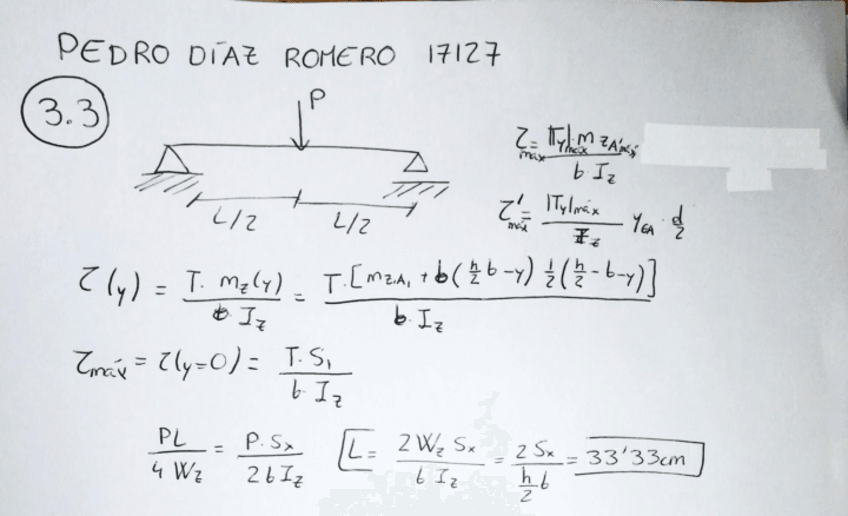 PEDRO DÍAZ ROMERO 17127
3.3
P
L/2 L/2
τmáx = |Ty|máx · m zA'máx / b · Iz
τ'máx = |Ty|máx / Iz yGA · d/2
τ(y) = T · mz(y) / b Iz = T · [mzA1 + b(h/2 b - y) 1/2 (h/2 - b - y)] / b · Iz
τmáx = τ(y=0) = T · S1 / b · Iz
PL / 4 Wz = P · Sx / 2 b Iz L = 2 Wz Sx / b Iz = 2 Sx / h/2 b = 33'33cm